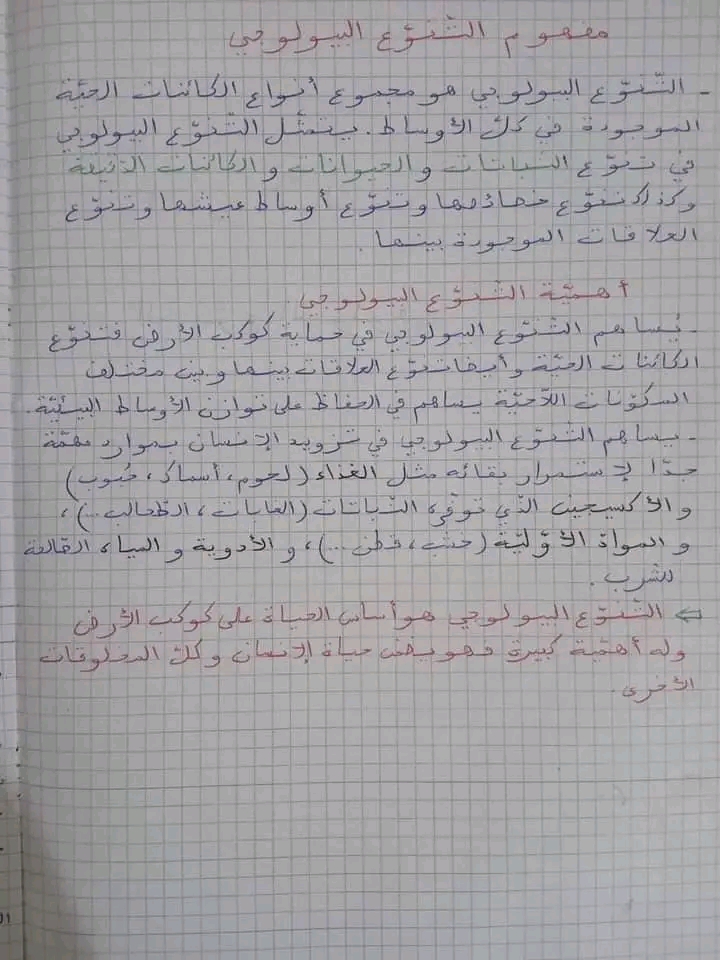 مفهوم التّنوّع البيولوجي
- التّنوّع البيولوجي هو مجموع أنواع الكائنات الحيّة
الموجودة في كلّ الأوساط. يتمثّل التّنوّع البيولوجي
في تنوّع النباتات والحيوانات والكائنات الدّقيقة
وكذلك تنوّع خصائصها وتنوّع أوساط عيشها وتنوّع
العلاقات الموجودة بينها.
أهمّيّة التّنوّع البيولوجي
- يُساهم التّنوّع البيولوجي في حماية كوكب الأرض فتنوّع
الكائنات الحيّة وأيضا تنوّع العلاقات بينها وبين مختلف
المكوّنات اللّاحيّة يساهم في الحفاظ على توازن الأوساط البيئيّة.
- يساهم التّنوّع البيولوجي في تزويد الإنسان بموارد مهمّة
جدّا لاستمرار بقائه مثل الغذاء (لحوم، أسماك، حُبوب)
والأكسيجين الذي توفّره النّباتات (الغابات، الطّحالب ...)،
والموادّ الأوّليّة (خشب، قطن ...)، والأدوية والمياه القالحة
للشرب.
⇐ التّنوّع البيولوجي هو أساس الحياة على كوكب الأرض
وله أهمّيّة كبيرة فهو يضمن حياة الإنسان وكلّ المخلوقات
الأخرى.
١٧